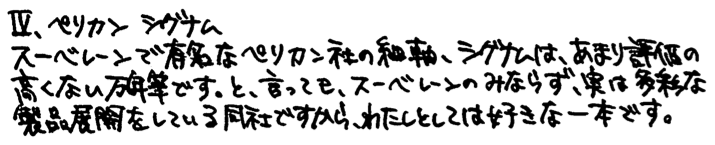 Ⅳ、ペリカン シグナム
スーベレーンで有名なペリカン社の細軸、シグナムは、あまり評価の
高くない万年筆です。と、言っても、スーベレーンのみならず、実は多彩な
製品展開をしている同社ですから、わたしとしては好きな一本です。